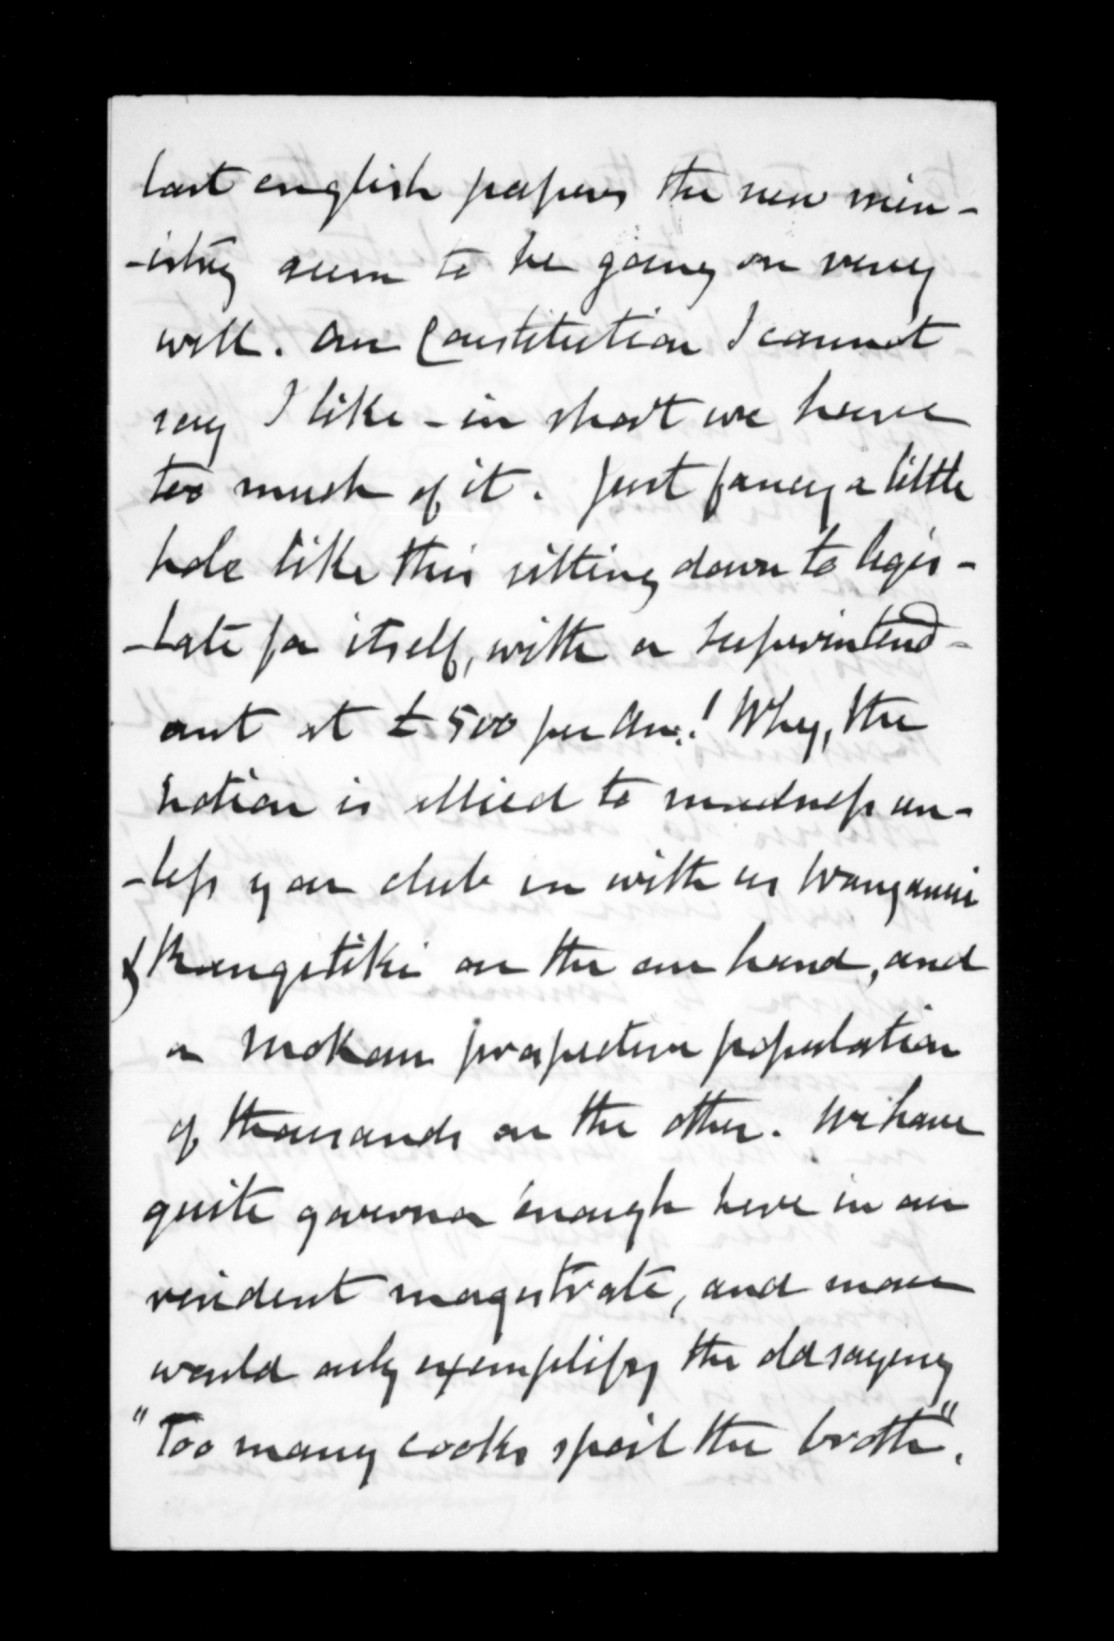 last english papers the new min-
-istry seem to be going on very
well. Our Constitution I cannot
say I like - in short we have
too much of it. Just fancy a little
hole like this sitting down to legis-
-late for itself, with a Superintend-
ant at £500 per An.! Why, the
notion is allied to madness un-
-less you club in with us Wanganui
& Rangitiki on the one hand, and
a Mokau prospective population
of thousands on the other. We have
quite governor enough here in our
resident magistrate, and more
would only exemplify the old saying
"Too many cooks spoil the broth".